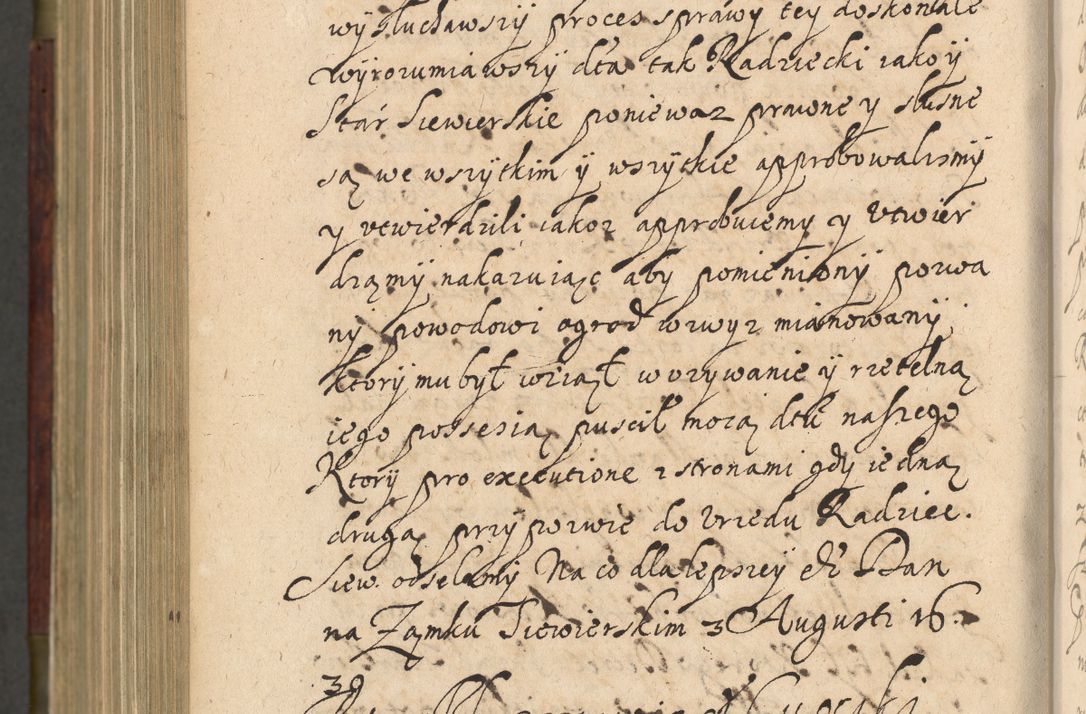 wysłuchawszy proces sprawy tey doskonale
wyrozumiawszy dta tak Radziecki iako y
Stár Siewierskie poniewaz prawne y slusne
są we wszytkim y wszytkie approbowalismy
y vtwierdzili iakoz approbuiemy y vtwier
dzamy nakazuiąc aby pomieniony pozwa
ny powodowi ogrod wzwyz mianowany
ktory mu był wziął w vzywanie y rzetelną
iego possesią puscił mocą dtu naszego
Ktory pro executione z stronami gdy iedna
drugą przypozwie do vrzedu Radziec.
Siew. odsełamy Na co dla lepszey etc Dan
na Zamku Siewierskim 3 Augusti 16
39